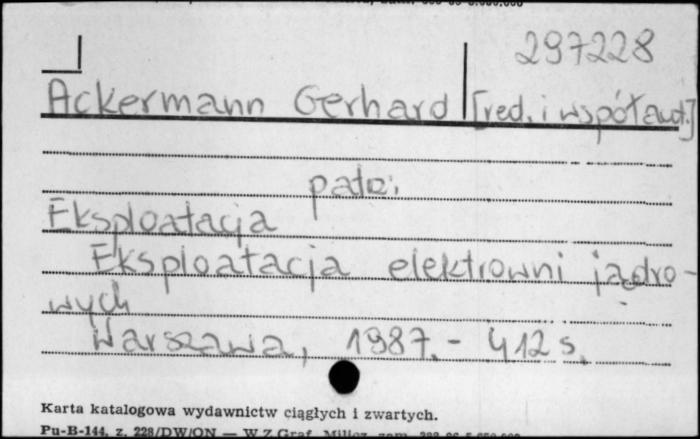 297228
Ackermann Gerhard [red. i współaut.]
patrz:
Eksploatacja
Eksploatacja elektrowni jądro-
wych
Warszawa, 1987. - 412 s.
Karta katalogowa wydawnictw ciągłych i zwartych.
Pu-B-144, z. 228/DW/ON — W.Z.Graf. Milicz, zam.